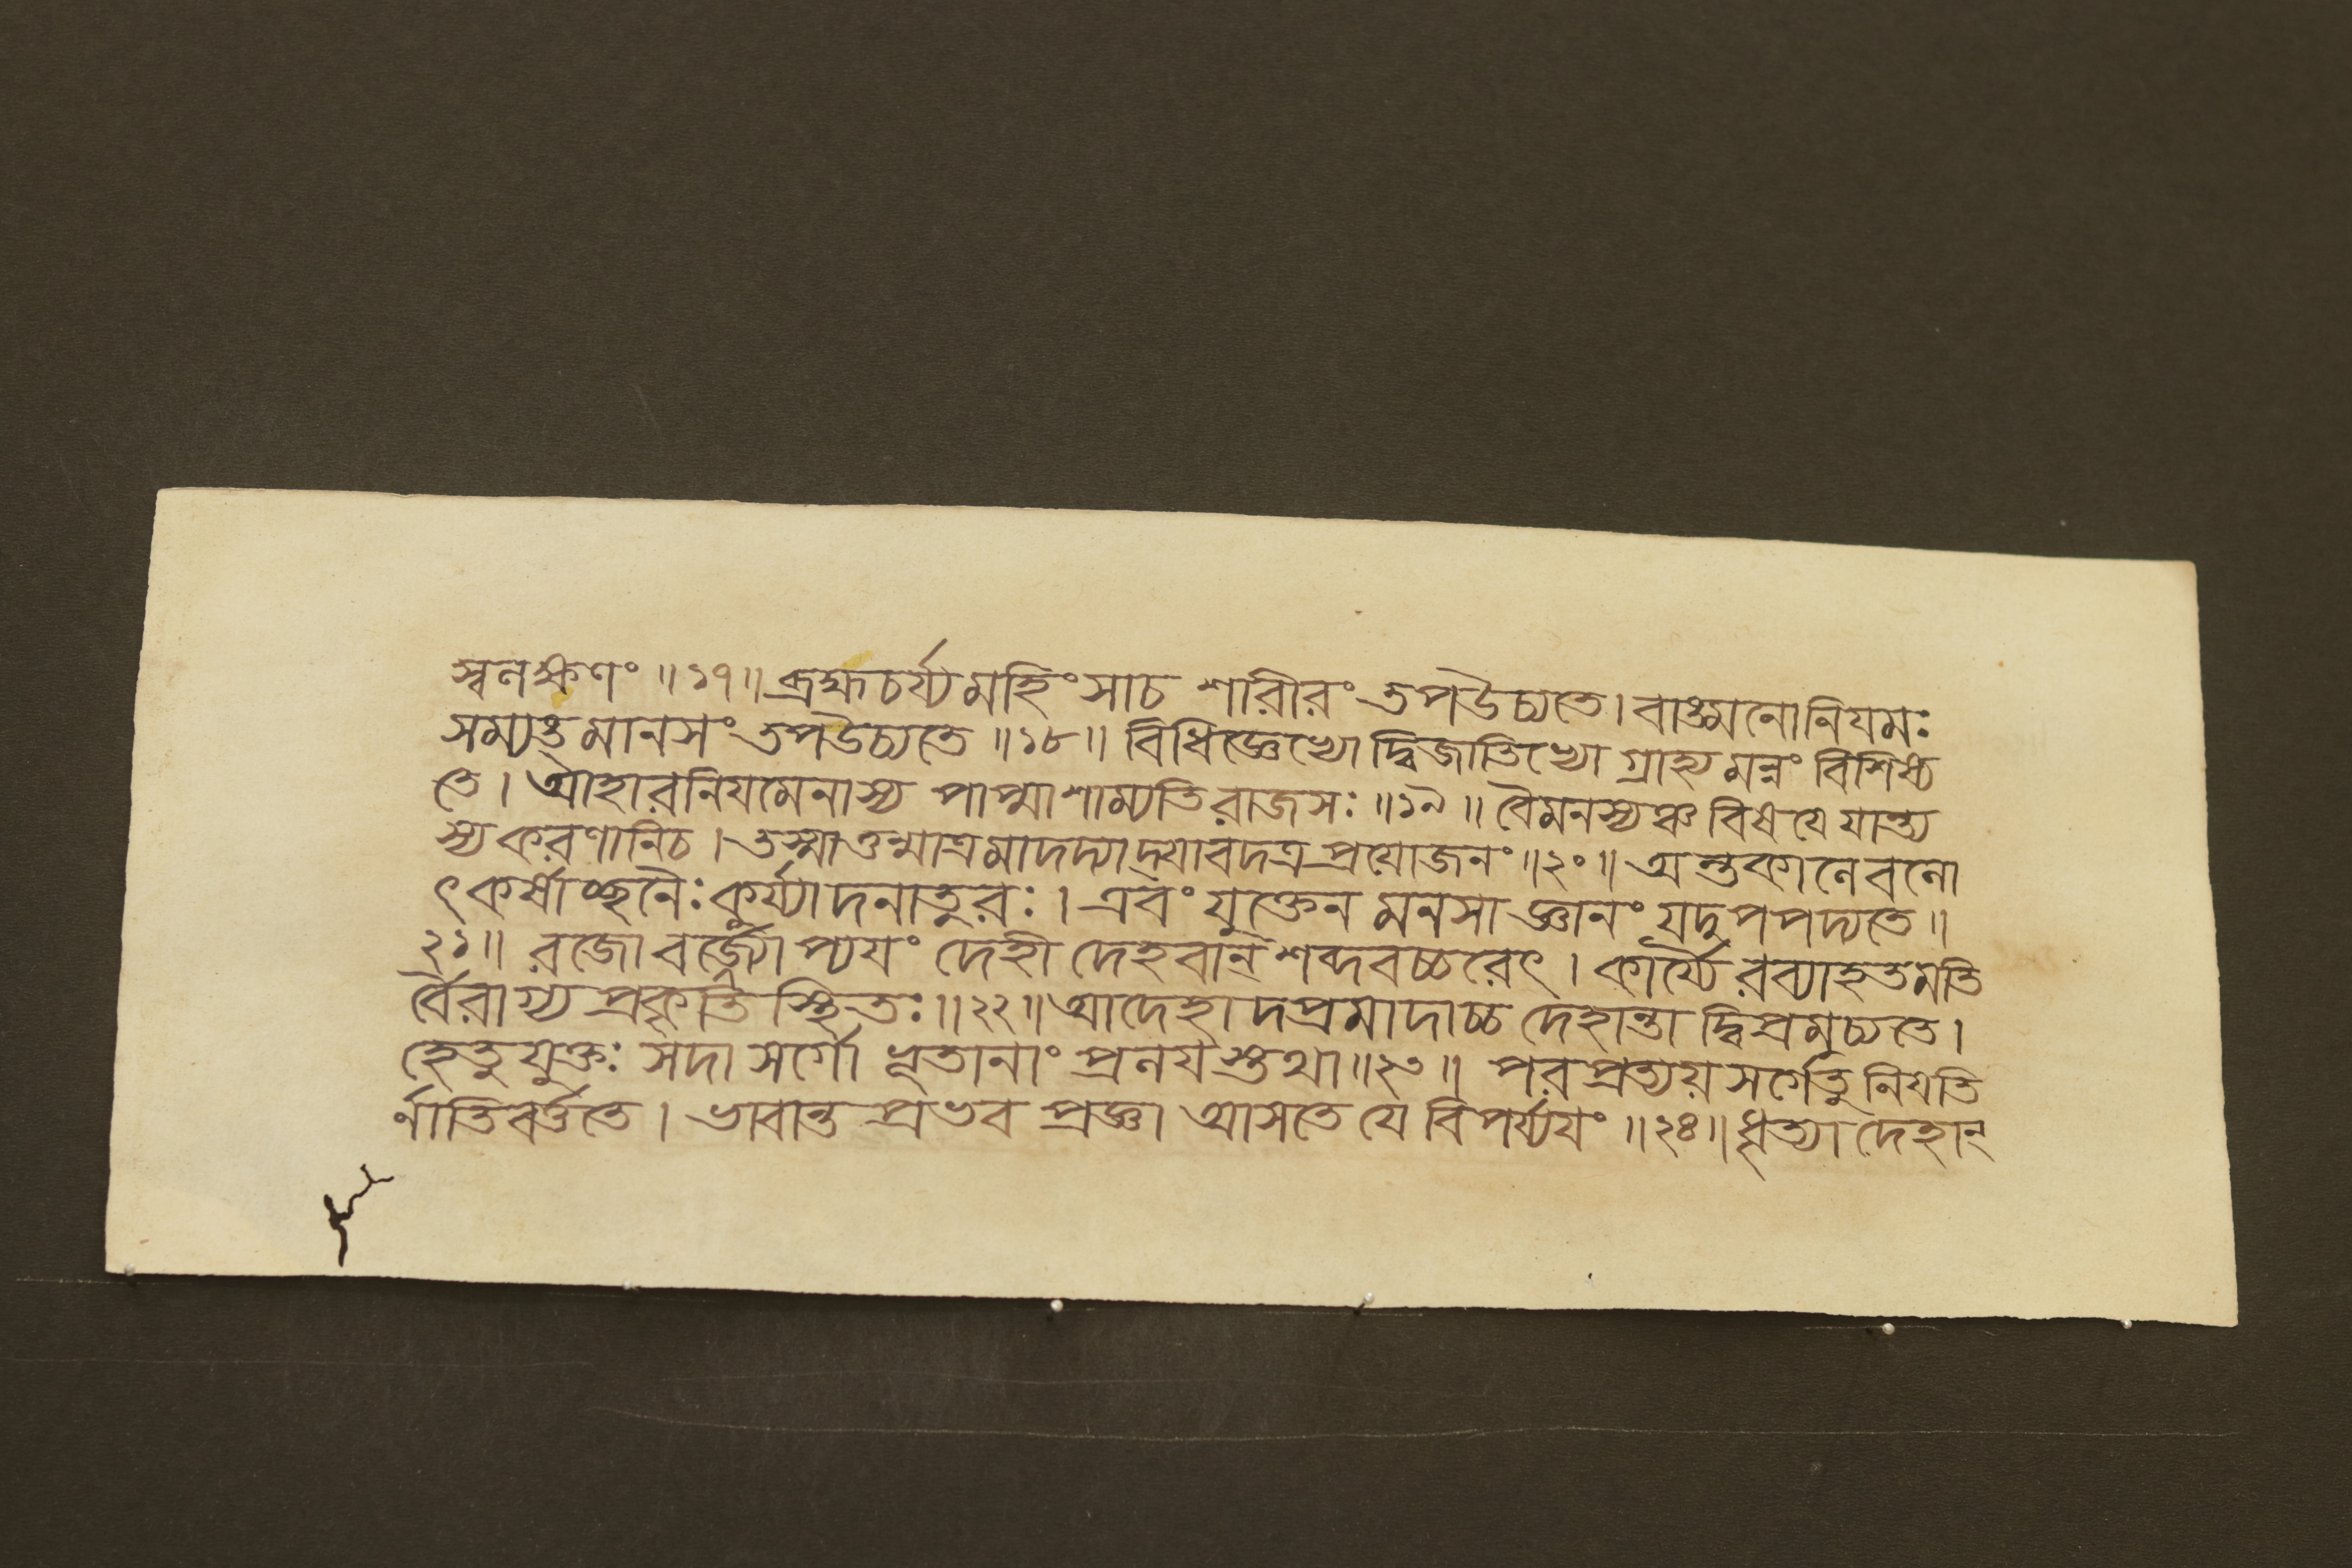 স্বলক্ষণং ॥১৭॥ ব্রহ্মচর্য্যমহিংসাচ শারীরং তপউচ্যতে। বাঙ্মনোনিযমঃ
সম্যঙ্ মানসং তপউচ্যতে ॥১৮॥ বিধিজ্ঞেভ্যো দ্বিজাতিভ্যো গ্রাহ্যমন্নং বিশিষ্য
তে। আহারনিযমেনাস্য পাপ্মাশাম্যতিরাজসঃ ॥১৯॥ বৈমনস্যঞ্চ বিষযে যান্ত্য
স্য করণানিচ। তস্মাত্তন্মাত্রমাদদ্যাদ্যাবদত্রপ্রযোজনং ॥২০॥ অন্তকালেবলো
ৎকর্ষাচ্ছনৈঃ কুর্য্যাদনাতুরঃ। এবং যুক্তেন মনসা জ্ঞানং যদুপপদ্যতে ॥
২১॥ রজোবর্জ্যোপ্যযং দেহী দেহবান্ শব্দবচ্চরেৎ। কার্য্যৈরব্যাহতমতি
র্বৈরাগ্য প্রকৃতি স্থিতঃ ॥২২॥ আদেহাদপ্রমাদাচ্চ দেহান্তাদ্বিপ্রমুচ্যতে।
হেতুযুক্তঃ সদা সর্গো ভূতানাং প্রলযস্তথা ॥২৩॥ পরপ্রত্যয়সর্গেতু নিযতি
র্নাতিবর্ত্ততে। ভাবান্ত প্রভব প্রজ্ঞা আসতে যে বিপর্য্যযং ॥২৪॥ ধৃত্যা দেহান্